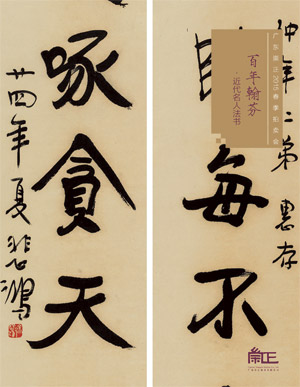 仲年二弟 惠存
每不
啄貪天
廿四年夏悲鴻
广东崇正2015春季拍卖会
百年翰芬
·近代名人法书
崇正